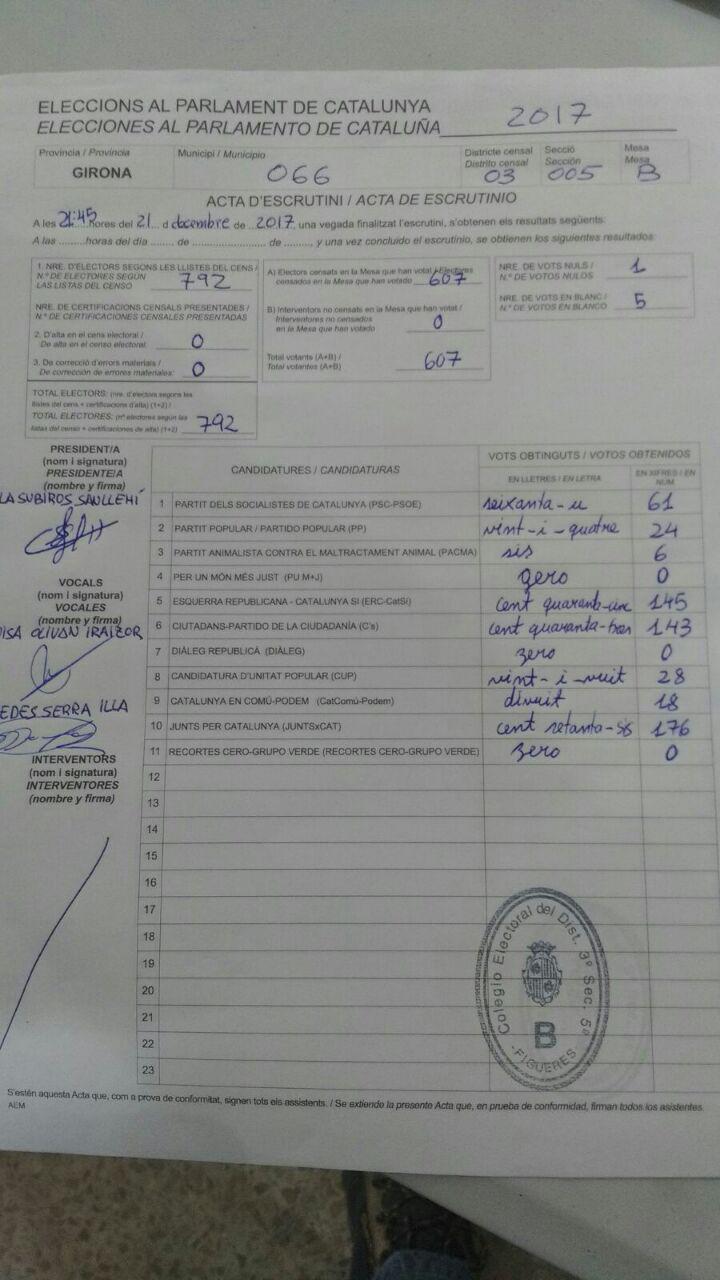 ELECCIONS AL PARLAMENT DE CATALUNYA
ELECCIONES AL PARLAMENTO DE CATALUÑA 2017
Provincia / Provincia Municipi / Municipio Districte censal Secció Mesa
Distrito censal Sección Mesa
GIRONA 066 03 005 B
ACTA D'ESCRUTINI / ACTA DE ESCRUTINIO
A les 21:45 hores del 21 d decembre de 2017 una vegada finalitzat l'escrutini, s'obtenen els resultats següents:
A las ........horas del día ....... de ...................... de ........, y una vez concluido el escrutinio, se obtienen los siguientes resultados:
1. NRE. D'ELECTORS SEGONS LES LLISTES DEL CENS /
N.º DE ELECTORES SEGÚN
LAS LISTAS DEL CENSO 792
NRE. DE CERTIFICACIONS CENSALS PRESENTADES /
N.º DE CERTIFICACIONES CENSALES PRESENTADAS
2. D'alta en el cens electoral /
De alta en el censo electoral: 0
3. De correcció d'errors materials /
De corrección de errores materiales: 0
TOTAL ELECTORS: (nre. d'electors segons les
llistes del cens + certificacions d'alta) (1+2) /
TOTAL ELECTORES: (nº electores según las
listas del censo + certificaciones de alta) (1+2) 792
A) Electors censats en la Mesa que han votat / Electores
censados en la Mesa que han votado 607
B) Interventors no censats en la Mesa que han votat /
Interventores no censados
en la Mesa que han votado 0
Total votants (A+B) /
Total votantes (A+B) 607
NRE. DE VOTS NULS /
N.º DE VOTOS NULOS 1
NRE. DE VOTS EN BLANC /
N.º DE VOTOS EN BLANCO 5
PRESIDENT/A
(nom i signatura)
PRESIDENTE/A
(nombre y firma)
LA SUBIROS SAULLEHÍ
VOCALS
(nom i signatura)
VOCALES
(nombre y firma)
ISA OLIVAN IRAIZOR
EDES SERRA ILLA
INTERVENTORS
(nom i signatura)
INTERVENTORES
(nombre y firma)
CANDIDATURES / CANDIDATURAS VOTS OBTINGUTS / VOTOS OBTENIDOS
EN LLETRES / EN LETRA EN XIFRES / EN NUM
1 PARTIT DELS SOCIALISTES DE CATALUNYA (PSC-PSOE) seixanta-u 61
2 PARTIT POPULAR / PARTIDO POPULAR (PP) vint-i-quatre 24
3 PARTIT ANIMALISTA CONTRA EL MALTRACTAMENT ANIMAL (PACMA) sis 6
4 PER UN MÓN MÉS JUST (PU M+J) zero 0
5 ESQUERRA REPUBLICANA - CATALUNYA SI (ERC-CatSí) cent 145
6 CIUTADANS-PARTIDO DE LA CIUDADANÍA (C's) cent quaranta-tres 143
7 DIÀLEG REPUBLICÀ (DIÀLEG) zero 0
8 CANDIDATURA D'UNITAT POPULAR (CUP) vint-i-vuit 28
9 CATALUNYA EN COMÚ-PODEM (CatComú-Podem) divuit 18
10 JUNTS PER CATALUNYA (JUNTSxCAT) cent setanta-sis 176
11 RECORTES CERO-GRUPO VERDE (RECORTES CERO-GRUPO VERDE) zero 0
12
13
14
15
16
17
18
19
20
21
22
23
Colegio Electoral del Dist. 3º Sec. 5ª
B
-FIGUERES-
S'estén aquesta Acta que, com a prova de conformitat, signen tots els assistents. / Se extiende la presente Acta que, en prueba de conformidad, firman todos los asistentes.
AEM